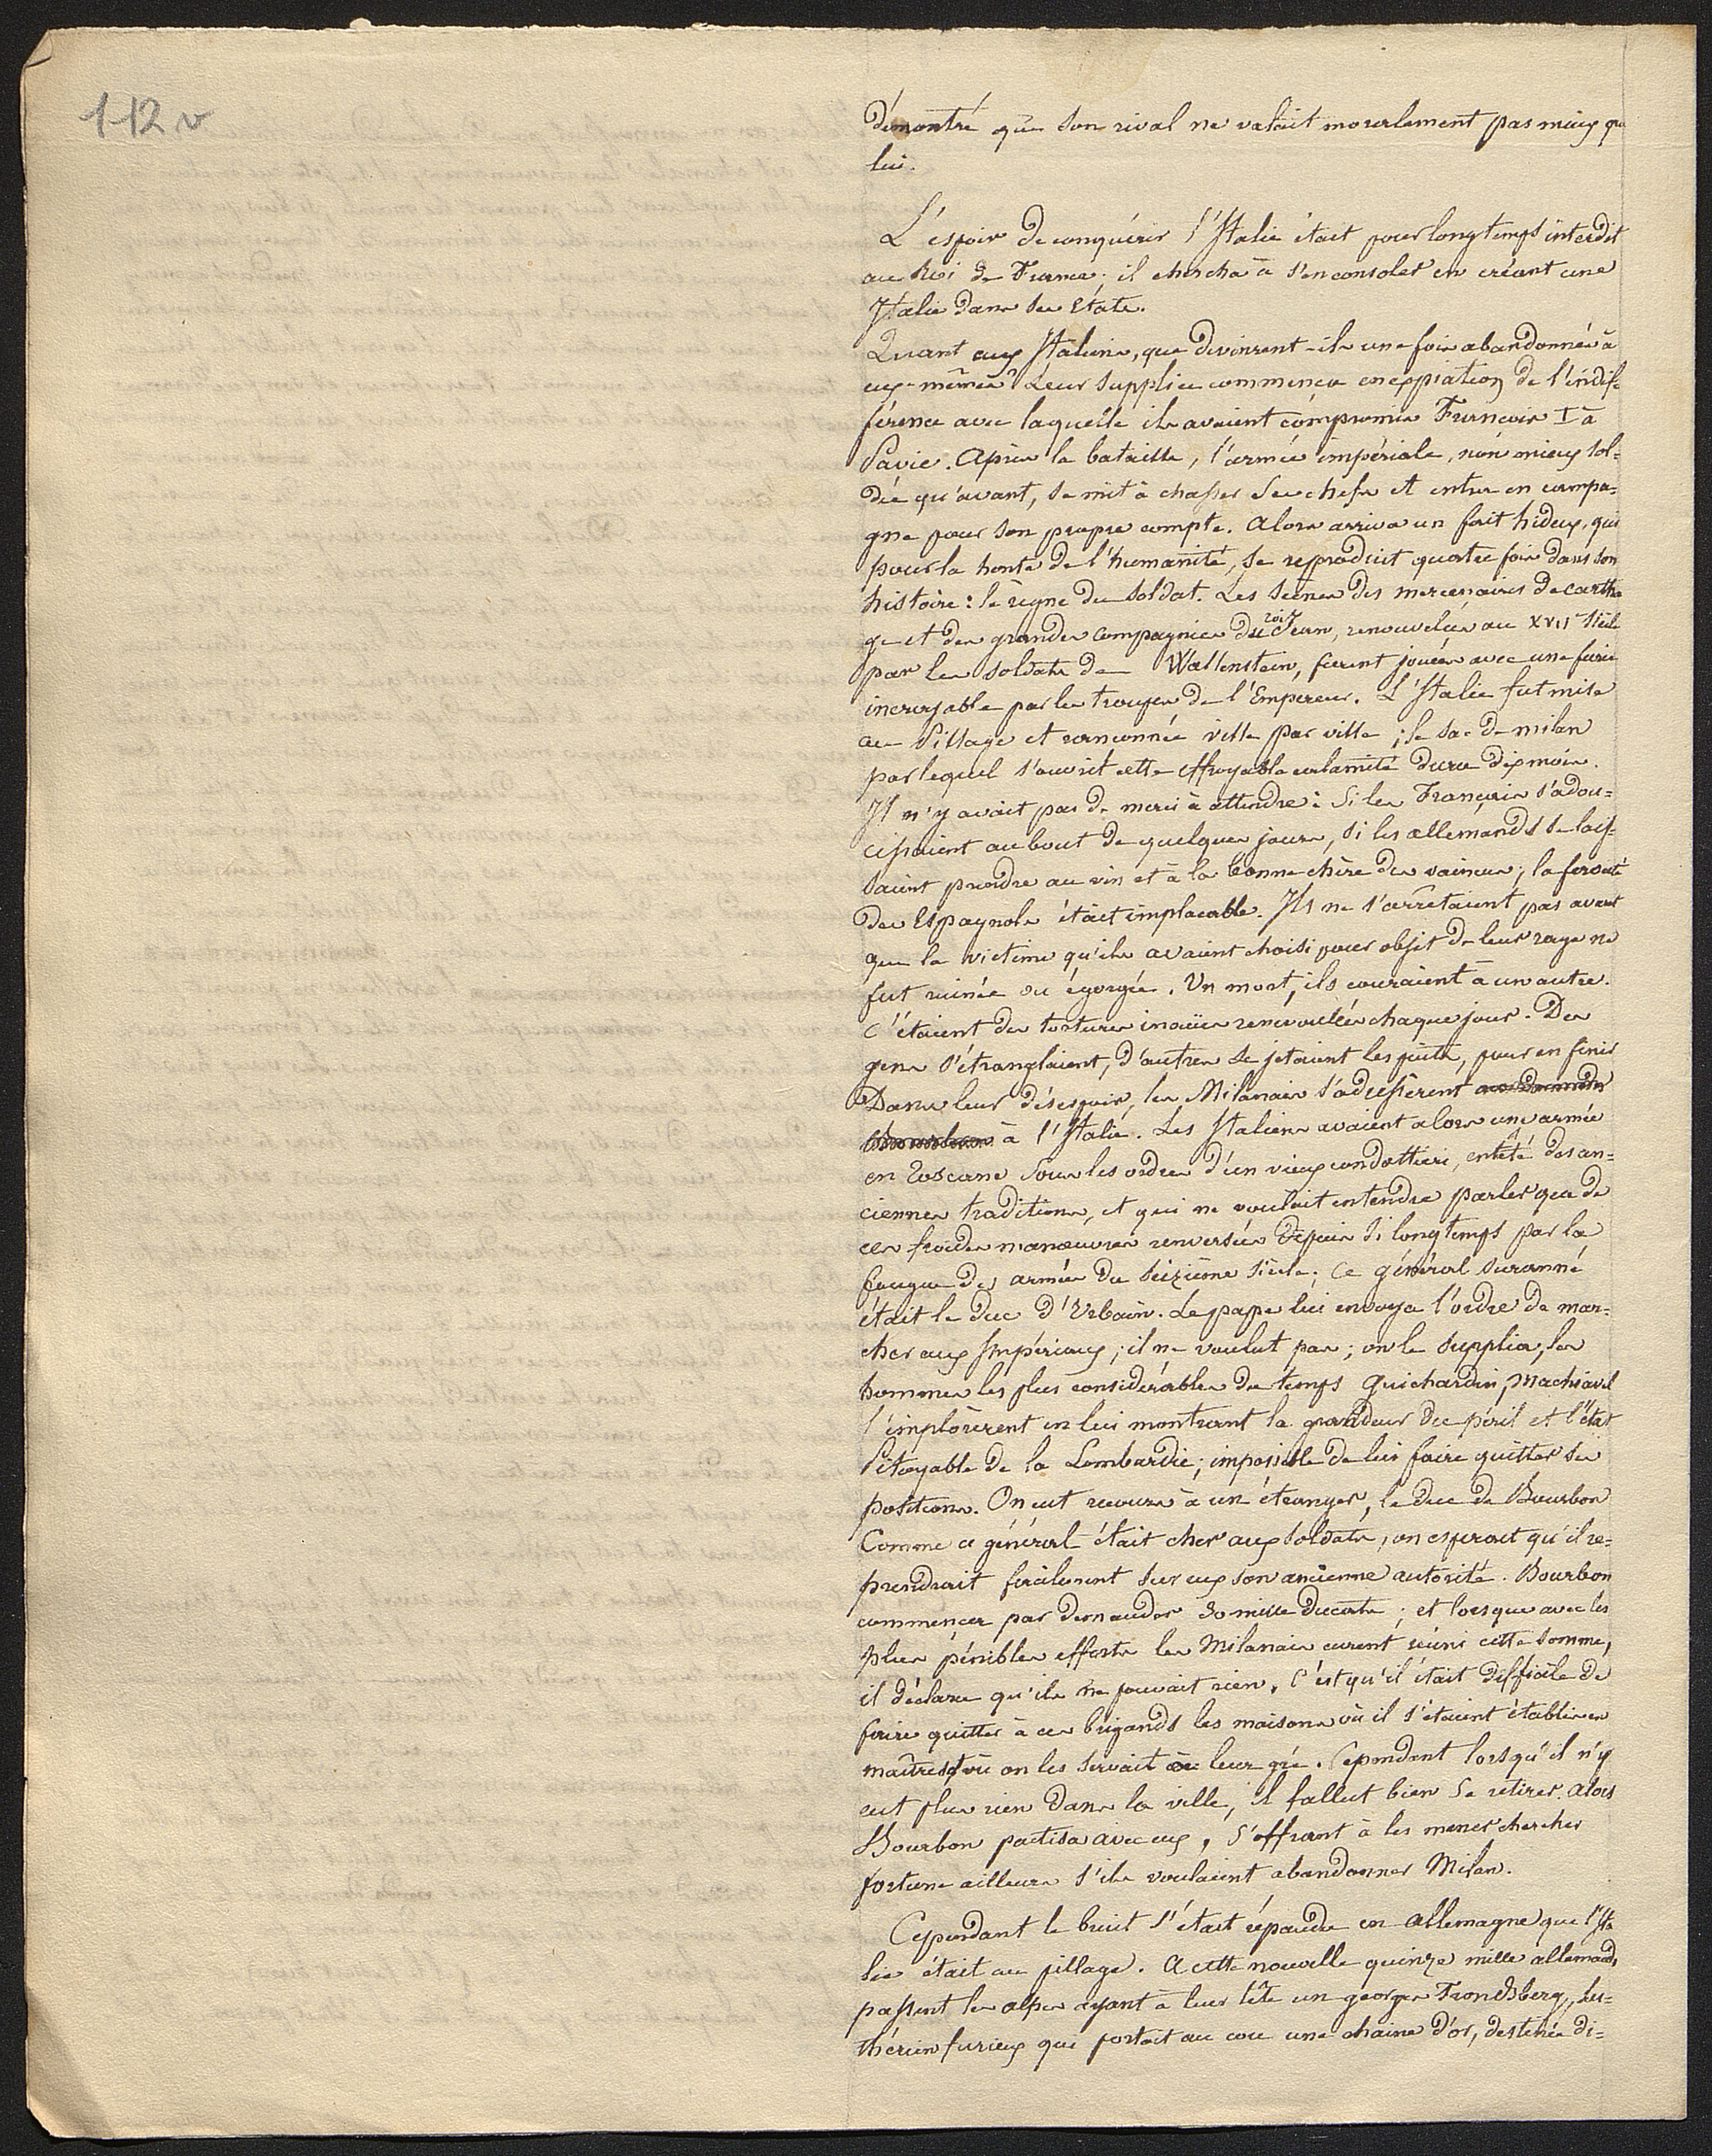 112 v
démontré que son rival ne valait moralement pas mieux que
lui.
L'espoir de conquérir l'Italie était pour longtemps interdit
au Roi de France; il chercha à s'en consoler en créant une
Italie dans ses Etats.
Quant aux Italiens, que devinrent-ils une fois abandonnés à
eux-mêmes? Leur supplice commença en expiation de l'indif-
férence avec laquelle ils avaient compromis François I à
Pavie. Après la bataille, l'armée impériale, non mieux sol-
dée qu'avant, se mit à chasser ses chefs et entra en campa-
gne pour son propre compte. Alors arriva un fait hideux, qui
pour la honte de l'humanité, se reproduit quatre fois dans son
histoire: le règne du soldat. Les scènes des mercenaires de cartha
ge et des grandes compagnies du roi Jean, renouvelées au XVIIe siècle
par les soldats de Wallenstein, furent jouées avec une furie
incroyable par les troupes de l'Empereur. L'Italie fut mise
au Pillage et rançonnée ville par ville; le sac de milan
par lequel s'ouvrit cette effroyable calamité dura dix mois.
Il n'y avait pas de merci à attendre: Si les Français s'adou-
cissaient au bout de quelques jours, si les allemands se lais-
saient prendre au vin et à la bonne chère des vaincus; la férocité
des Espagnols était implacable. Ils ne s'arrêtaient pas avant
que la victime qu'ils avaient choisi pour objet de leur rage ne
fut ruinée ou égorgée. Un mort, ils couraient à un autre.
C'étaient des tortures inouïes renouvelées chaque jour. Des
gens s'étranglaient, d'autres se jetaient les puits, pour en finir
Dans leur désespoir, les Milanais s'adressèrent
à l'Italie. Les Italiens avaient alors une armée
en Toscane sous les ordres d'un vieux condottieri, entêté des an-
ciennes traditions, et qui ne voulait entendre parler que de
ces froides manœuvres renversées depuis si longtemps par la
fougue des armées du seizième siècle; ce général suranné
était le duc d'Urbain. Le pape lui envoya l'ordre de mar-
cher aux Impériaux; il ne voulut pas; on le supplia, les
hommes les plus considérables du temps Guichardin, Machiavel
l'implorèrent en lui montrant la grandeur du péril et l'état
Pitoyable de la Lombardie; impossible de lui faire quitter ses
positions. On eut recours à un étranger, le duc de Bourbon
Comme ce général était cher aux soldats, on espérait qu'il re-
prendrait facilement sur eux son ancienne autorité. Bourbon
commença par demander 30 mille ducats; et lorsque avec les
plus pénibles efforts les Milanais eurent réuni cette somme,
il déclara qu'ils ne pouvait rien. C'est qu'il était difficile de
faire quitter à ces brigands les maisons où il s'étaient établis en
maîtres et où on les servait à leur gré. Cependant lorsqu'il n'y
eut plus rien dans la ville, il fallut bien se retirer. Alors
Bourbon pactisa avec eux, s'offrant à les mener chercher
fortune ailleurs s'ils voulaient abandonner Milan.
Cependant le bruit s'était répandu en Allemagne que l'Ita
lie était au pillage. A cette nouvelle quinze mille allemands
passent les alpes ayant à leur tête un georges Frondsberg, lu-
thérien furieux qui portait au cou une chaine d'or, destinée di-